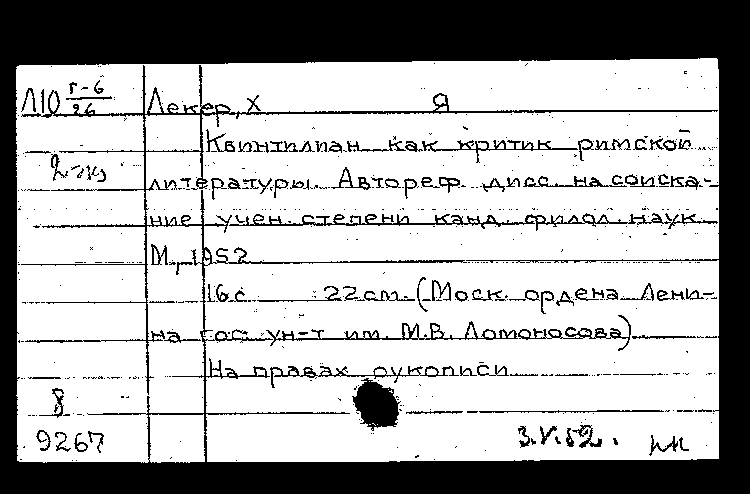 Л10 г-6/26 Лекер, Х Я
Квинтилиан как критик римской
2 экз литературы. Автореф. дисс. на соиска-
ние учен. степени канд. филол. наук
М., 1952
16с 22см. (Моск. ордена Лени-
на гос. ун-т им. М.В. Ломоносова)
На правах рукописи
8
9267 3.V.52.